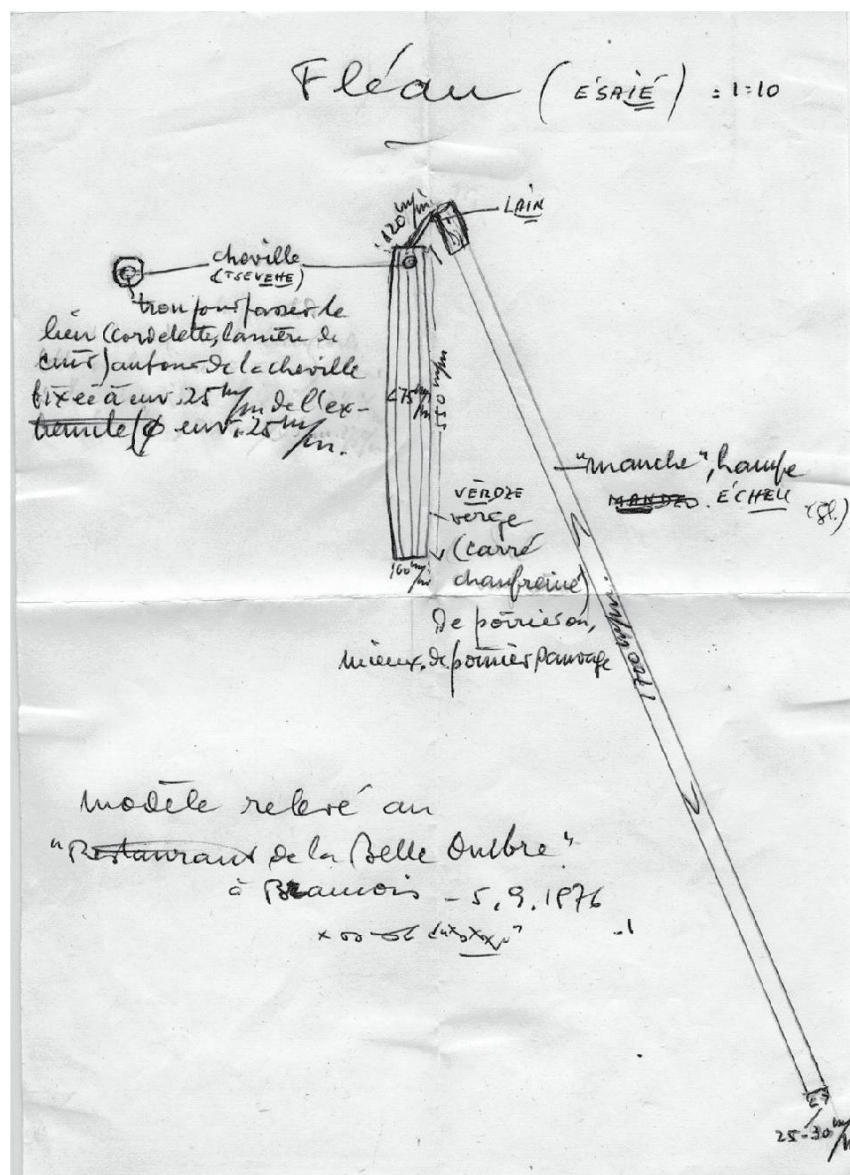 Fléau (ÉSAIÉ) = 1:10
120 m/m
LAIN
cheville
(TSEVEHE)
trou pour passer le
lien (cordelette, lanière de
cuir) autour de la cheville
fixée à env. 25 m/m de l'ex-
trémité ϕ env. 25 m/m.
475 m/m
550 m/m
"manche", hampe
ÉCHEU (gl.)
VÈRDZE
verge
(carré
chanfreiné)
de poirier ou,
mieux, de pommier sauvage
m/m
1700 m/m
modèle relevé au
"Restaurant de la Belle Ombre"
à Bramois - 5.9.1976
25-30 m/m